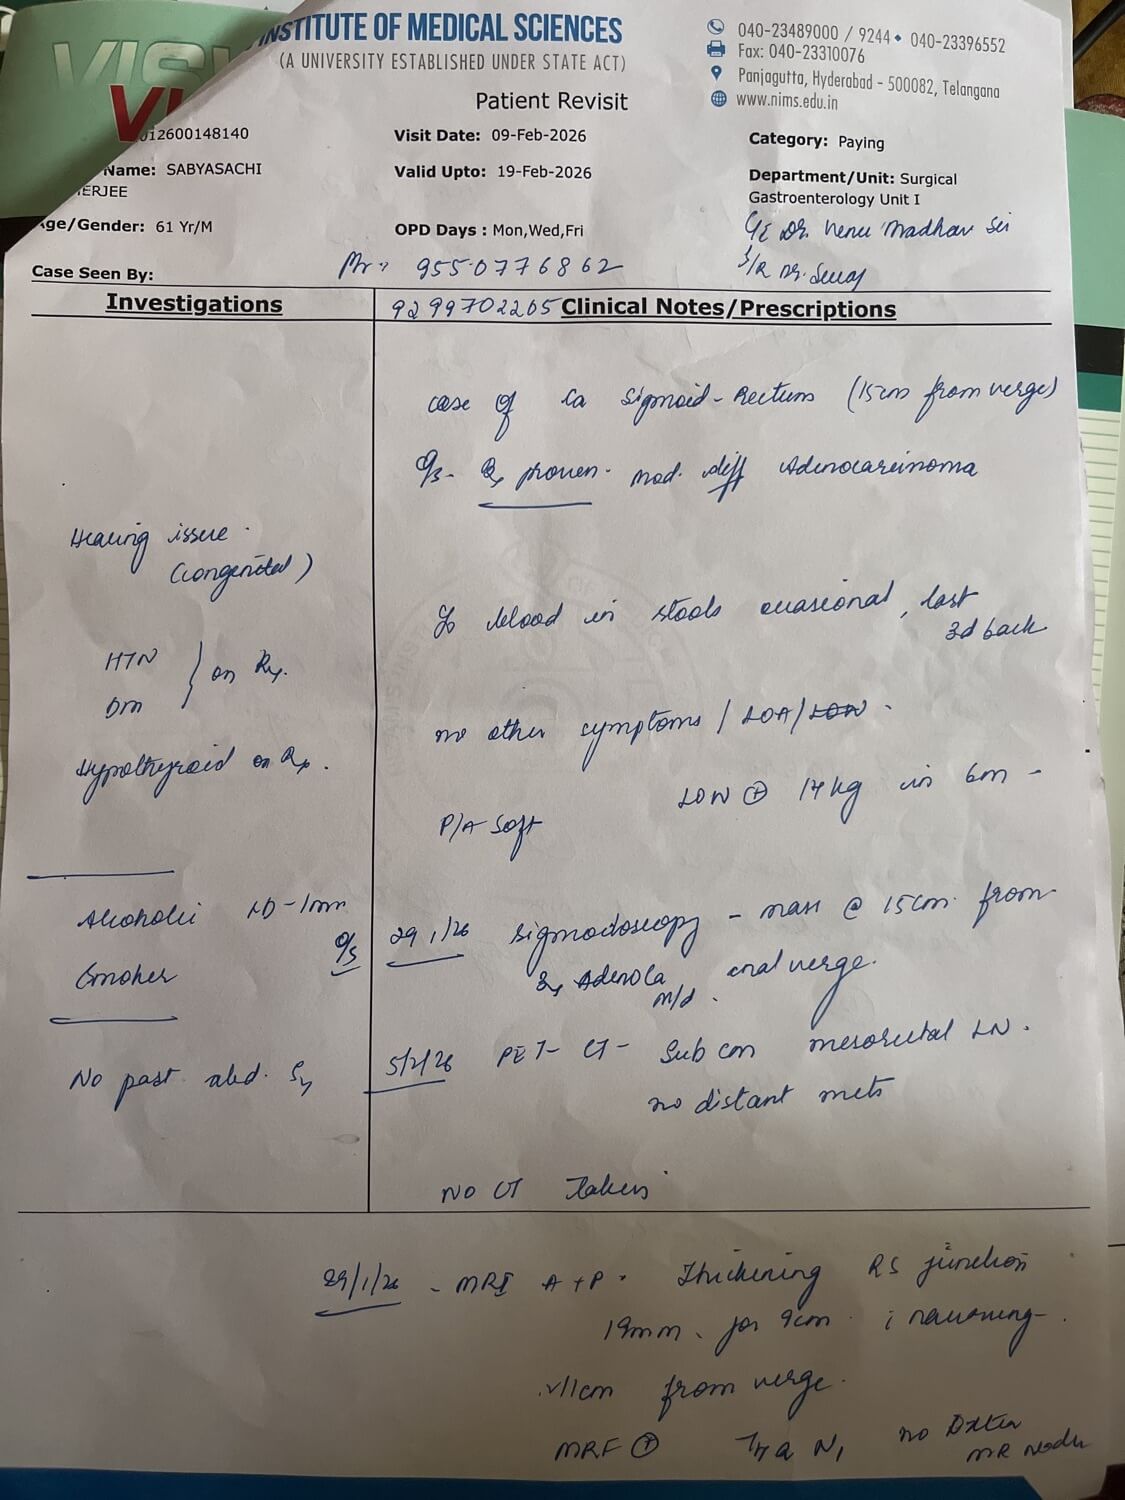 INSTITUTE OF MEDICAL SCIENCES
(A UNIVERSITY ESTABLISHED UNDER STATE ACT)
040-23489000 / 9244 • 040-23396552
Fax: 040-23310076
Panjagutta, Hyderabad - 500082, Telangana
www.nims.edu.in
Patient Revisit
012600148140
Visit Date: 09-Feb-2026
Category: Paying
Name: SABYASACHI
ERJEE
Valid Upto: 19-Feb-2026
Department/Unit: Surgical
Gastroenterology Unit I
Age/Gender: 61 Yr/M
OPD Days : Mon,Wed,Fri
Dr. Venu Madhav Sir
S/R Dr.
Case Seen By:
9550776862
Investigations
9299702205 Clinical Notes/Prescriptions
case of Ca Sigmoid-Rectum (15cm from verge)
Bx proven. mod. diff Adenocarcinoma
Hearing issue.
(congenital)
c/o blood in stools occasional, last
3d back
HTN
DM } on Rx.
no other symptoms / LOA/LOW.
Hypothyroid on Rx.
LOW ⊕ 14kg in 6m -
P/A soft
Alcoholic LD-1m
Smoker
29/1/26 Sigmoidoscopy - mass @ 15cm from
anal verge.
Bx Adeno Ca
m/d.
5/2/26 PET-CT- Sub cm mesorectal LN.
no distant mets
No past abd. Sx
NO CT Taken
29/1/26 - MRI A+P. Thickening RS junction
19mm. for 9cm. c narrowing.
11cm from verge.
MRF ⊕ N1 no
MR node